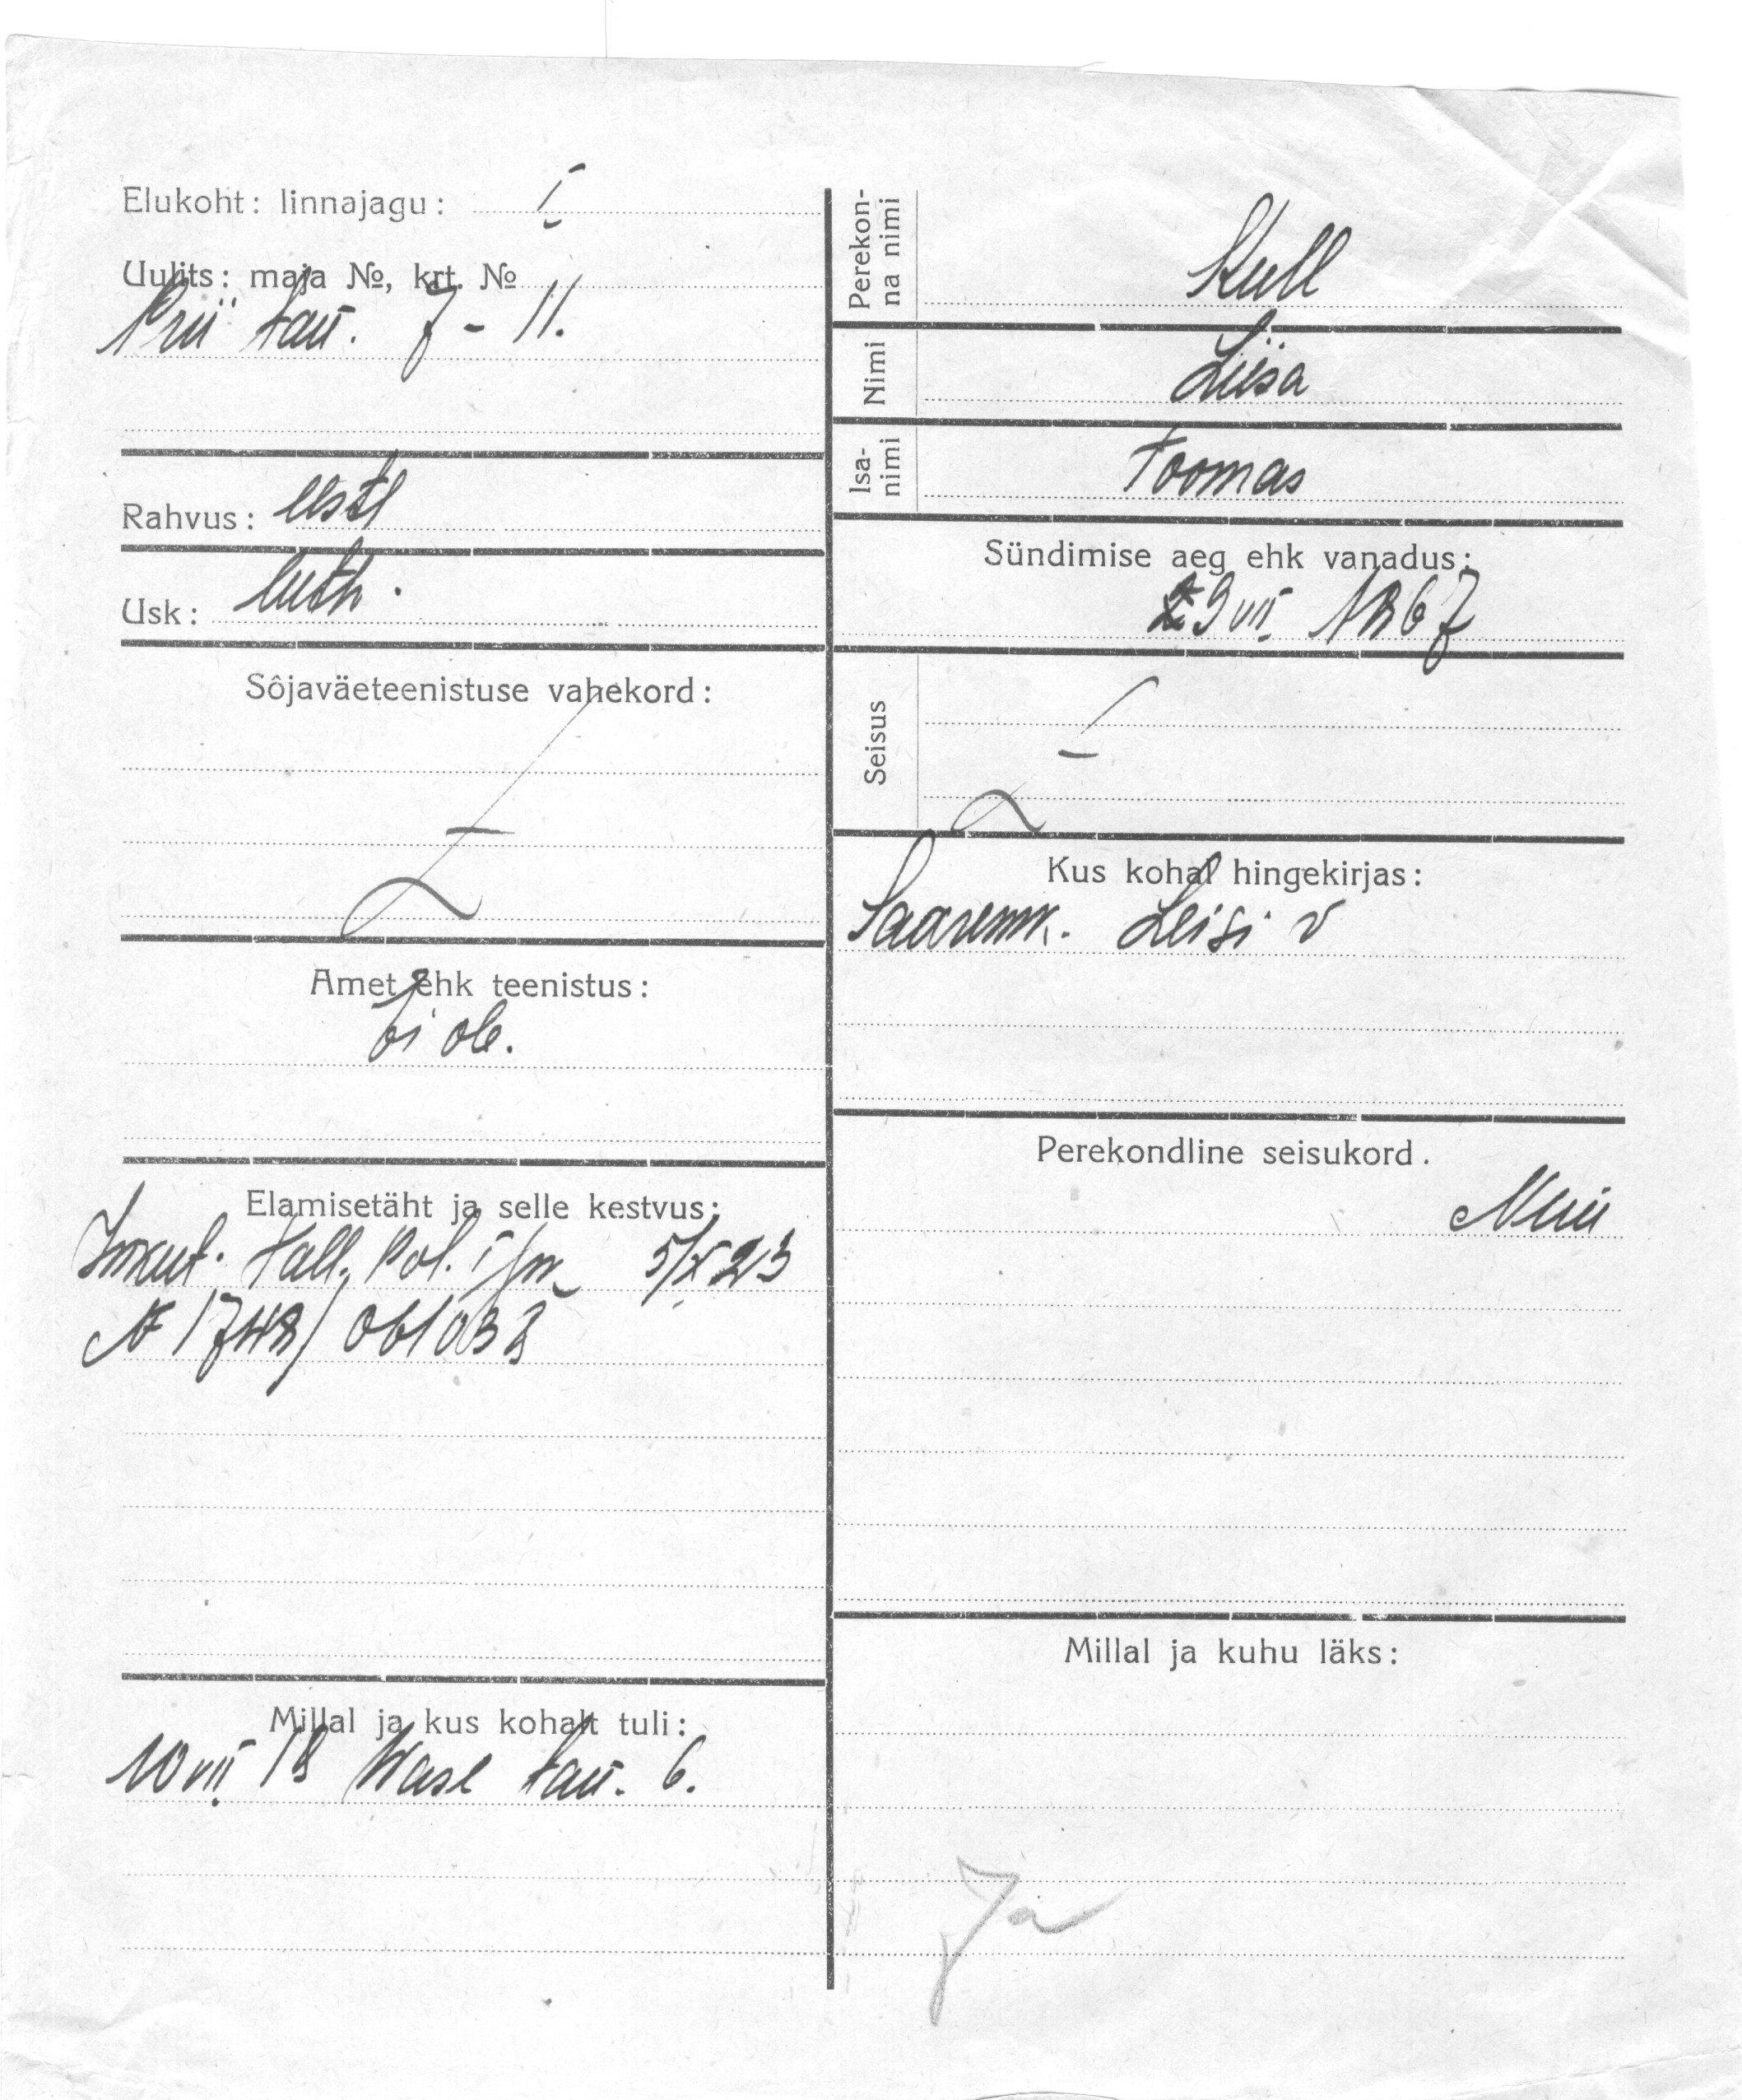 Elukoht: linnajagu: I
Uulits: maja №, krt. №
Prii tän. 7 - 11.
Rahvus: eesti
Usk: luth.
Sõjaväeteenistuse vahekord:
Amet ehk teenistus:
Ei ole.
Elamisetäht ja selle kestvus:
Isikut. Tall. Pol. I jsk. 5/X 23
№ 1748/
Millal ja kus kohalt tuli:
10 VII 18 Wase tän. 6.
Perekonna nimi
Kull
Nimi
Liisa
Isanimi
Toomas
Sündimise aeg ehk vanadus:
29 VII 1867
Seisus
Kus kohal hingekirjas:
Saarem. Leisi v
Perekondline seisukord.
Millal ja kuhu läks:
Ja